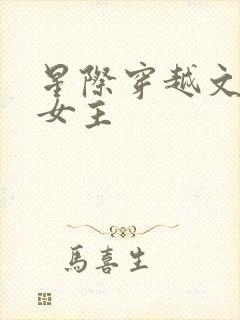 星際穿越文
女主
馬喜生